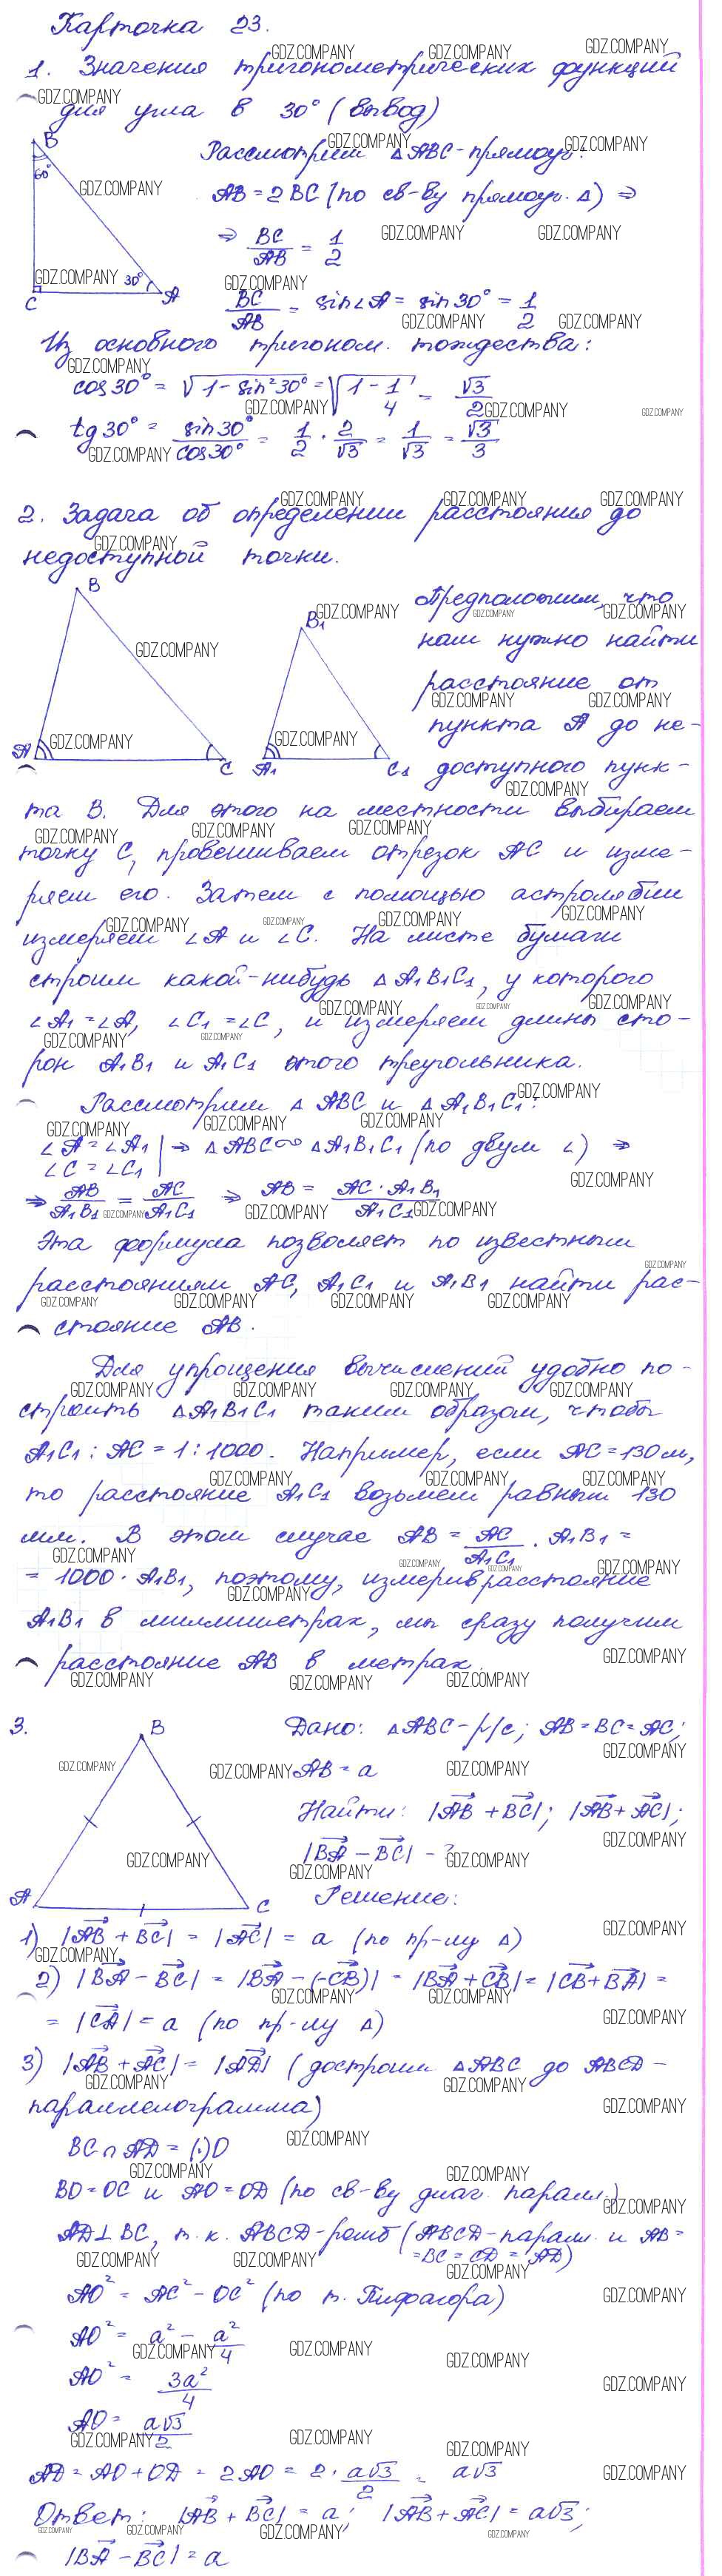 Карточка 23.
1. Значения тригонометрических функций
для угла в 30° (вывод)
B
60°
30°
C
A
Рассмотрим △ABC - прямоуг.:
AB = 2BC (по св-ву прямоуг. △) ⇒
⇒ BC/AB = 1/2
BC/AB = sin∠A = sin30° = 1/2
Из основного тригоном. тождества:
cos30° = √(1 - sin²30°) = √(1 - 1/4) = √3/2
tg30° = sin30°/cos30° = 1/2 · 2/√3 = 1/√3 = √3/3
2. Задача об определении расстояния до
недоступной точки.
B
A
C
B₁
A₁
C₁
Предположим, что
нам нужно найти
расстояние от
пункта A до не-
доступного пунк-
та B. Для этого на местности выбираем
точку C, провешиваем отрезок AC и изме-
ряем его. Затем с помощью астролябии
измеряем ∠A и ∠C. На листе бумаги
строим какой-нибудь △A₁B₁C₁, у которого
∠A₁ = ∠A, ∠C₁ = ∠C, и измеряем длины сто-
рон A₁B₁ и A₁C₁ этого треугольника.
Рассмотрим △ABC и △A₁B₁C₁:
∠A = ∠A₁ | ⇒ △ABC ∾ △A₁B₁C₁ (по двум ∠) ⇒
∠C = ∠C₁ |
⇒ AB/A₁B₁ = AC/A₁C₁ ⇒ AB = AC · A₁B₁/A₁C₁
Эта формула позволяет по известным
расстояниям AC, A₁C₁ и A₁B₁ найти рас-
стояние AB.
Для упрощения вычислений удобно по-
строить △A₁B₁C₁ таким образом, чтобы
A₁C₁ : AC = 1 : 1000. Например, если AC = 130 м,
то расстояние A₁C₁ возьмем равным 130
мм. В этом случае AB = AC/A₁C₁ · A₁B₁ =
= 1000 · A₁B₁, поэтому, измерив расстояние
A₁B₁ в миллиметрах, мы сразу получим
расстояние AB в метрах.
3.
B
A
C
Дано: △ABC - р/с; AB = BC = AC;
AB = a
Найти: |AB + BC|; |AB + AC|;
|BA - BC| - ?
Решение:
1) |AB + BC| = |AC| = a (по пр-лу △)
2) |BA - BC| = |BA - (-CB)| = |BA + CB| = |CB + BA| =
= |CA| = a (по пр-лу △)
3) |AB + AC| = |AD| (достроим △ABC до ABCD -
параллелограмма)
BC ∩ AD = (·)O
BO = OC и AO = OD (по св-ву диаг. паралл.)
AD ⊥ BC, т. к. ABCD - ромб (ABCD - паралл. и AB =
= BC = CD = AD)
AO² = AC² - OC² (по т. Пифагора)
AO² = a² - a²/4
AO² = 3a²/4
AO = a√3/2
AD = AO + OD = 2AO = 2 · a√3/2 = a√3
Ответ: |AB + BC| = a; |AB + AC| = a√3;
|BA - BC| = a
GDZ.COMPANY